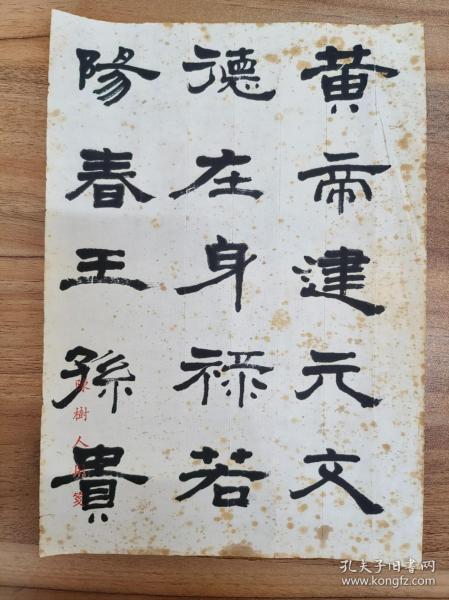 黄帝建元文
德在身禄若
陽春王孫貴
陳樹人用箋
孔夫子旧书网
www.kongfz.com